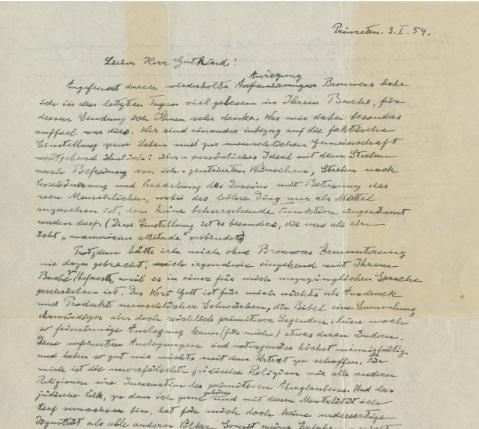 Princeton. 3. I. 54.
Lieber Herr Gutkind!
Angefeuert durch wiederholte Anregung Brouwers habe
ich in den letzten Tagen viel gelesen in Ihrem Buche, für
dessen Sendung ich Ihnen sehr danke. Was mir dabei besonders
auffiel war dies. Wir sind einander inbezug auf die faktische
Einstellung zum Leben und zur menschlichen Gemeinschaft
weitgehend ähnlich: Ihr persönliches Ideal mit dem Streben
nach Befreiung von ich-zentrierten Wünschen, Streben nach
Verschönerung und Veredelung des Daseins mit Betonung des
rein Menschlichen, wobei das leblose Ding nur als Mittel
anzusehen ist, dem keine beherrschende Funktion eingeräumt
werden darf. (Diese Einstellung ist es besonders, die uns als ein
echt „unamerican attitude" verbindet)
Trotzdem hätte ich mich ohne Brouwers Ermunterung
nie dazu gebracht, mich irgendwie eingehend mit Ihrem
Buche zu befassen, weil es in einer für mich unzugänglichen Sprache
geschrieben ist. Das Wort Gott ist für mich nichts als Ausdruck
und Produkt menschlicher Schwächen, die Bibel eine Sammlung
ehrwürdiger aber doch reichlich primitiver Legenden. Keine noch
so feinsinnige Auslegung kann (für mich) etwas daran ändern.
Diese verfeinerten Auslegungen sind naturgemäss höchst mannigfaltig
und haben so gut wie nichts mit dem Urtext zu schaffen. Für
mich ist die unverfälschte jüdische Religion wie alle anderen
Religionen eine Incarnation des primitiven Aberglaubens. Und das
jüdische Volk, zu dem ich gerne gehöre und mit dessen Mentalität ich
tief verwachsen bin, hat für mich doch keine andersartige
Dignität als alle anderen Völker. Soweit meine Erfahrung reicht